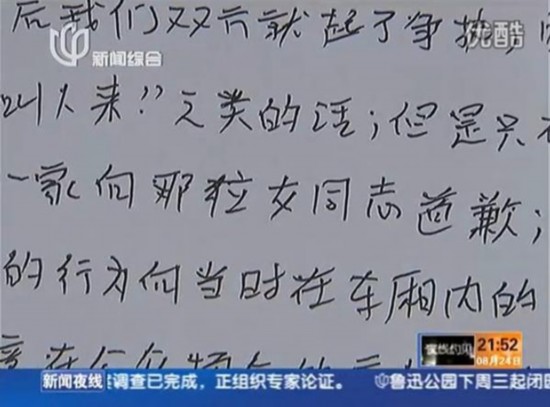 后我们双方就起了争执
优酷
新闻综合
叫人来"之类的话；但是只
一家向那位女同志道歉；
的行为向当时在车厢内的
夜线约见
21:52
08月24日
新闻夜线
调查已完成，正组织专家论证。
鲁迅公园下周三起闭园